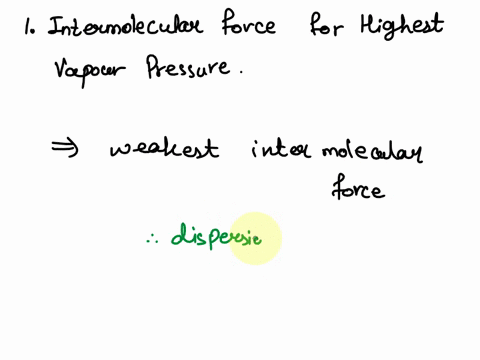 1. Intermolecular force for Highest
Vapour Pressure.
⇒ weakest inter molecular
force
∴ dispersie